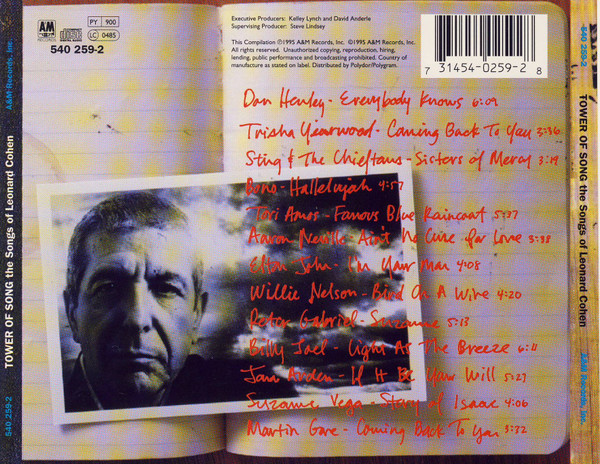 A&M RECORDS
COMPACT disc DIGITAL AUDIO
PY 900
LC 0485
540 259-2
Executive Producers: Kelley Lynch and David Anderle
Supervising Producer: Steve Lindsey
This Compilation ℗1995 A&M Records, Inc. ©1995 A&M Records, Inc.
All rights reserved. Unauthorized copying, reproduction, hiring,
lending, public performance and broadcasting prohibited. Country of
manufacture as stated on label. Distributed by Polydor/Polygram.
7 31454-0259-2 8
Don Henley - Everybody Knows 6:09
Trisha Yearwood - Coming Back To You 3:36
Sting & The Chieftans - Sisters of Mercy 3:19
Bono - Hallelujah 4:57
Tori Amos - Famous Blue Raincoat 5:37
Aaron Neville Ain't No Cure for Love 3:38
Elton John - I'm Your Man 4:08
Willie Nelson - Bird On A Wire 4:20
Peter Gabriel - Suzanne 5:13
Billy Joel - Light As The Breeze 6:11
Jann Arden - If It Be Your Will 5:27
Suzanne Vega - Story of Isaac 4:06
Martin Gore - Coming Back To You 3:32
540 259-2 TOWER OF SONG the Songs of Leonard Cohen A&M Records, Inc.
540 259-2 TOWER OF SONG the Songs of Leonard Cohen A&M Records, Inc.